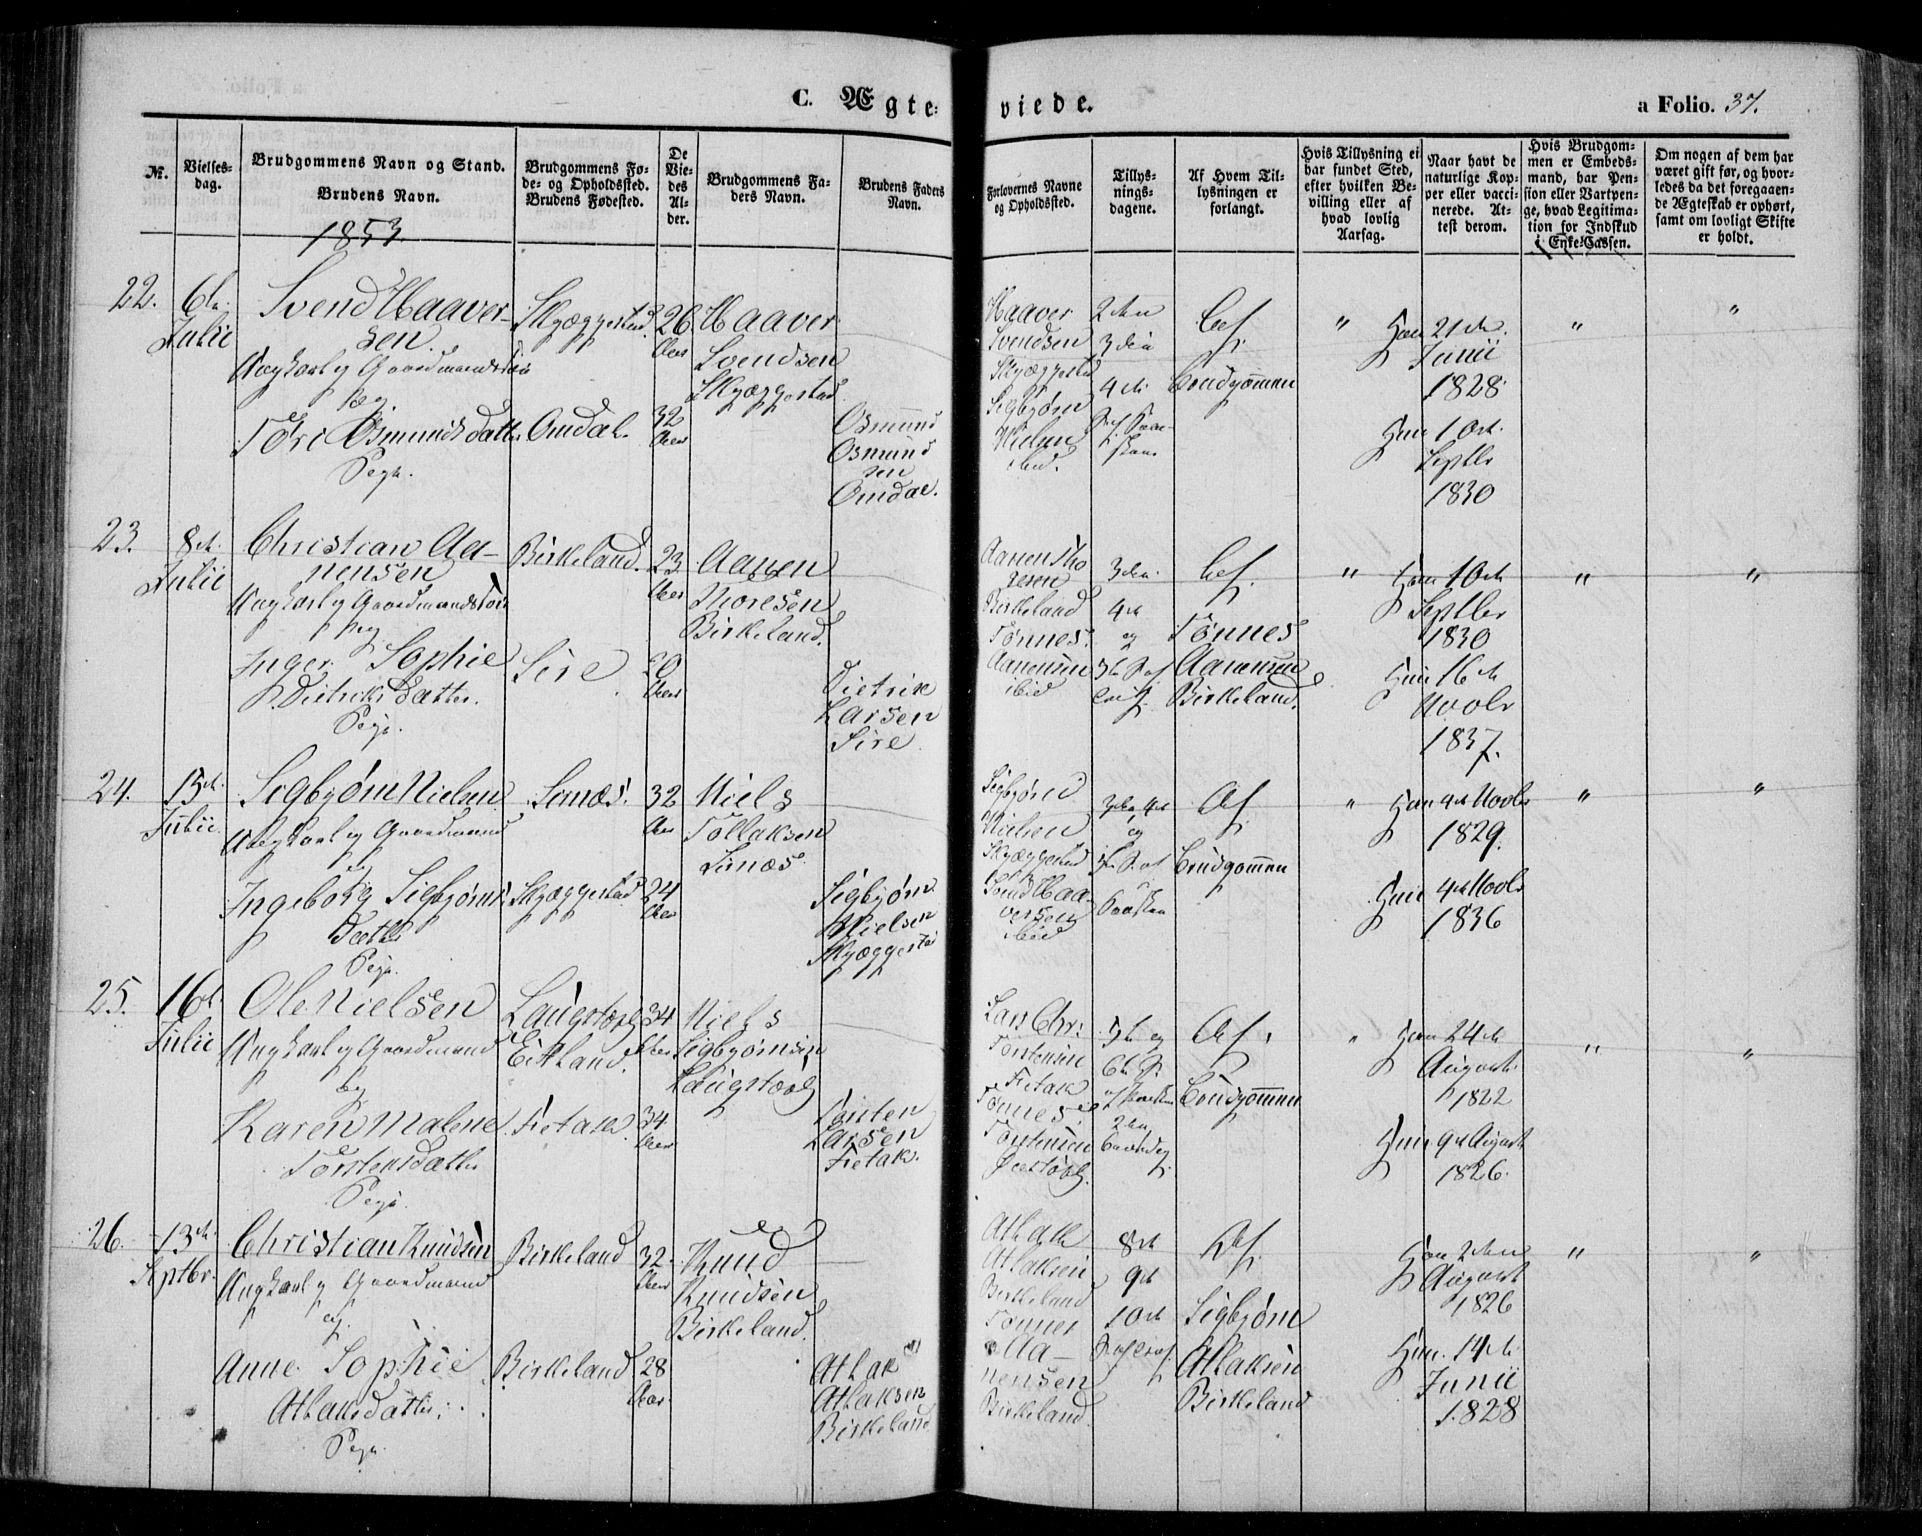 C. Ægte:
viede.
a Folio. 37.
№.
Vielses-
dag.
Brudgommens Navn og Stand.
Brudens Navn.
1853.
Brudgommens Fø-
de- og Opholdssted.
Brudens Fødested.
De
Vie-
des
Al-
der.
Brudgommens Fa-
ders Navn.
Brudens Faders
Navn.
Forlovernes Navne
og Opholdssted.
Tillys-
nings-
dagene.
Af Hvem Til-
lysningen er
forlangt.
Hvis Tillysning ei
har fundet Sted,
efter hvilken Be-
villing eller af
hvad lovlig
Aarsag.
Naar havt de
naturlige Kop-
per eller vacci-
nerede. At-
test derom.
Hvis Brudgom-
men er Embeds-
mand, har Pen-
sion eller Vartpen-
ge, hvad Legitima-
tion for Indskud
i Enke-Cassen.
Om nogen af dem har
været gift før, og hvor-
ledes da det foregaaen-
de Ægteskab er ophørt,
samt om lovligt Skifte
er holdt.
22.
6te
Julii
Svend Haaver-
sen.
Ungkarl og Gaardmandssøn
og
Töri Osmundsdatter
Pege.
Skjæggestad
Omdal.
26
Aar
32
Aar
Haaver
Svendsen
Skjæggestad.
Osmund
Osmund
sen
Omdal.
Haaver
Svendsen
Skjæggestad
Sigbjørn
Nielsen
ibid.
2den
3die
4de
Brudgommen
"
Han 21de
Junii
1828.
Hun 10de
Septbr
1830
"
"
23.
8de
Julii
Christian Aa-
nensen
Ungkarl og Gaardmandssøn
og
Inger Sophie
Dietriks Datter.
Pige.
Birkeland.
Sire
23
Aar
20
Aar
Aanen
Thoresen
Birkeland.
Dietrik
Larsen
Sire.
Aanen Tho
resen
Birkeland
Tønnes
Aanensen
ibid
3die
4de
og
Tønnes
Aanensen
Birkeland.
"
Han 10de
Septbr
1830
Hun 16de
Novbr
1837.
"
"
24.
15de
Julii
Sigbjørn Nielsen
Ungkarl og Gaardmand
og
Ingeborg Sigbjørns
Datter
Pige.
Sirnæs.
Skjæggestad
32
Aar
24
Aar
Niels
Tollaksen
Sirnæs
Sigbjørn
Nielsen
Skjæggestad
Sigbjørn
Nielsen
Skjæggestad
Svend Haa-
versen
ibid
3die 4de
og
Brudgommen
"
Han 4de Novbr
1829.
Hun 4de Novbr
1836
"
"
25.
16de
Julii
Ole Nielsen
Ungkarl og Gaardmand
og
Karen Malene
Torstensdatter
Pige.
Laugstøel
Eikland.
Fietak
34
Aar
34
Aar
Niels
Sigbjørnsen
Laugstøel
Torsten
Larsen
Fietak.
Lars Chr.
Torstensen
Fietak
Tønnes
Torstensen
5te og
6te
Brudgommen
"
Han 24de
August
1822
Hun 9de August
1826.
"
"
26.
13de
Septbr.
Christian Knudsen
Ungkarl og Gaardmand
og
Anne Sophie
Atlaksdatter.
Pige
Birkeland
Birkeland
32
Aar
28
Aar.
Knud
Knudsen
Birkeland.
Atlak
Atlaksen
Birkeland
Atlak
Atlaksen
Birkeland
Tønnes
Aa-
nensen
Birkeland.
8de
9de
10de
Sigbjørn
Atlaksen
Birkeland
Han 2den
August
1826
Hun 14de
Junii
1828
"
"